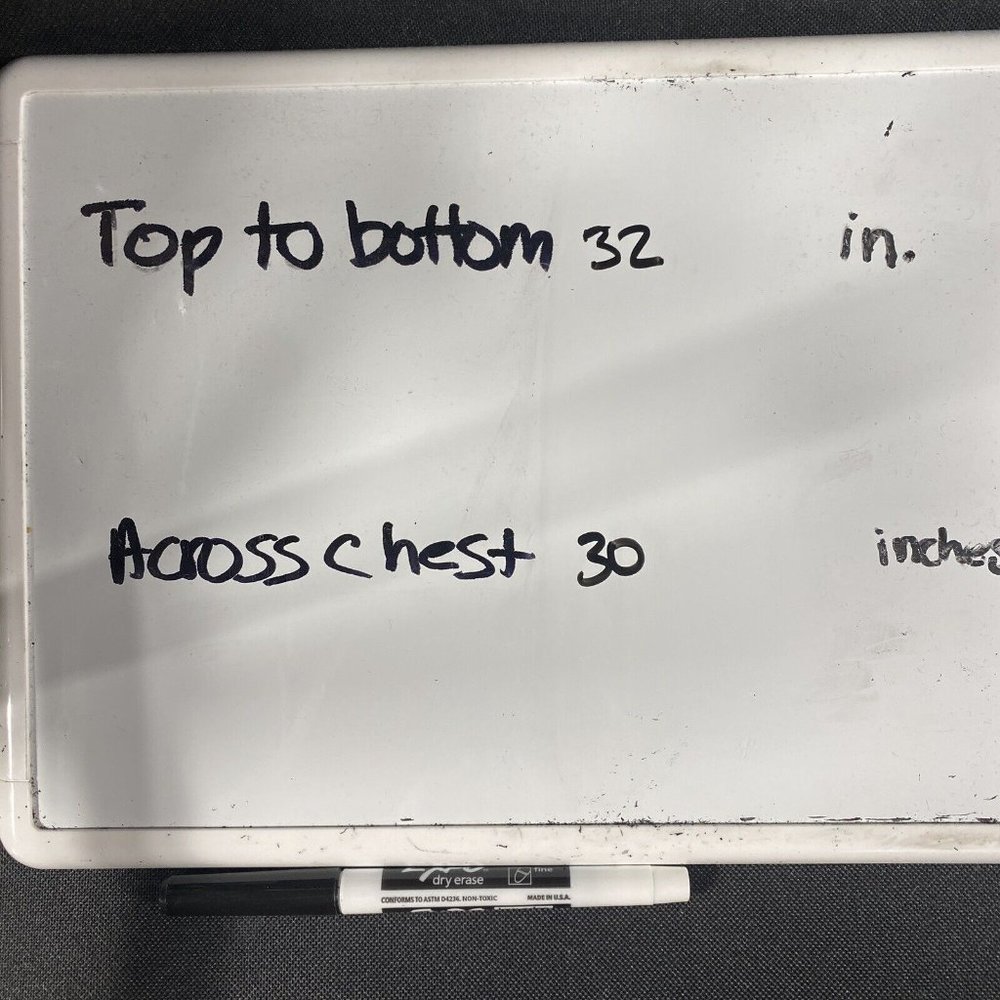 Top to bottom 32 in.
Across chest 30 inches
dry erase fine
CONFORMS TO ASTM D4236. NON-TOXIC MADE IN U.S.A.